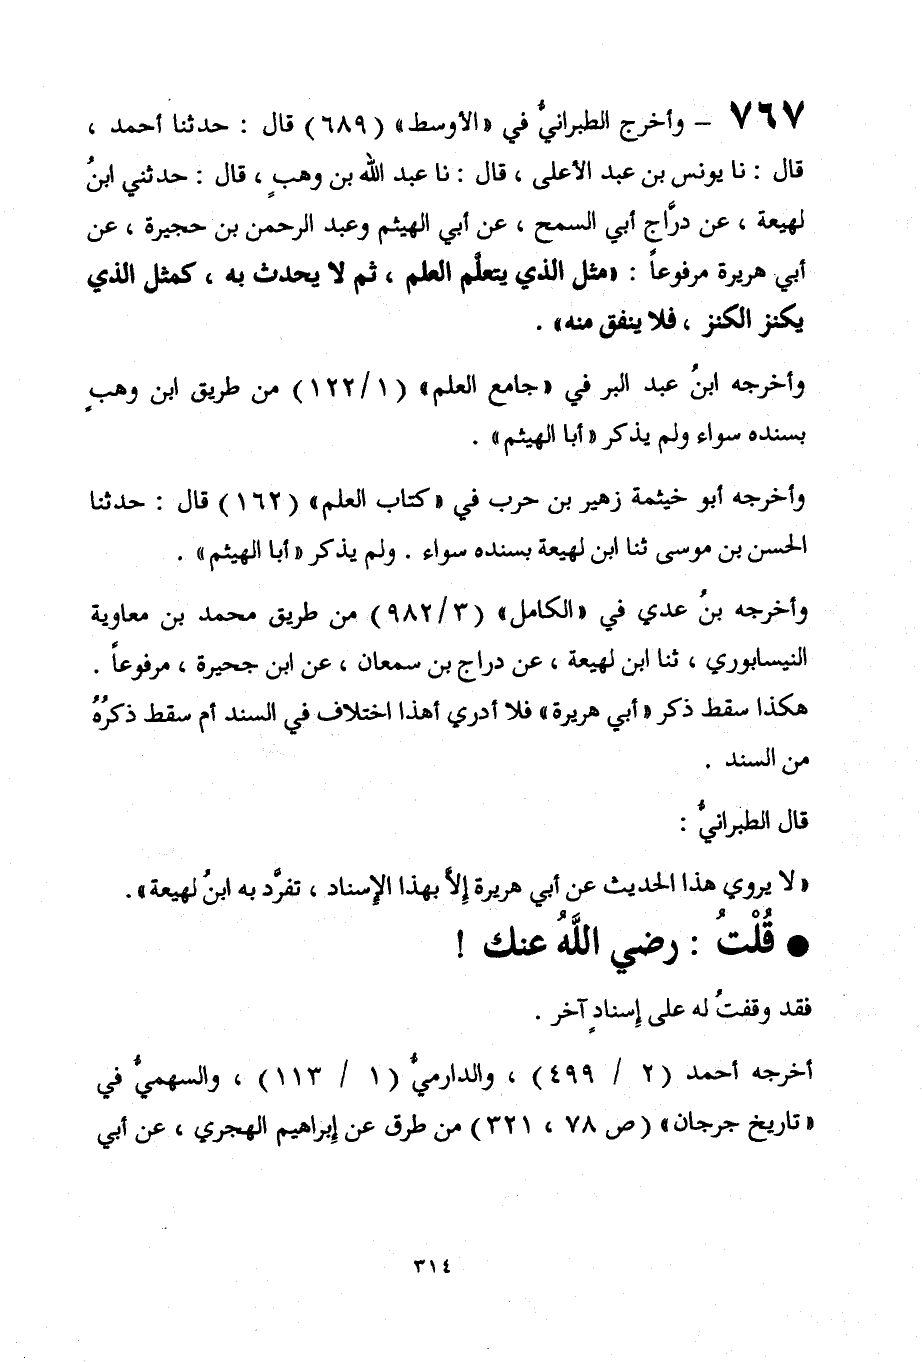 ٧٦٧ – وأخرج الطبرانيُّ في «الأوسط» (٦٨٩) قال : حدثنا أحمد ،
قال : نا يونس بن عبد الأعلى ، قال : نا عبد الله بن وهبٍ ، قال : حدثني ابنُ
لهيعة ، عن درَّاج أبي السمح ، عن أبي الهيثم وعبد الرحمن بن حجيرة ، عن
أبي هريرة مرفوعاً : «مثل الذي يتعلَّم العلم ، ثم لا يحدث به ، كمثل الذي
يكنز الكنز ، فلا ينفق منه» .
وأخرجه ابنُ عبد البر في «جامع العلم» (١٢٢/١) من طريق ابن وهبٍ
بسنده سواء ولم يذكر «أبا الهيثم» .
وأخرجه أبو خيثمة زهير بن حرب في «كتاب العلم» (١٦٢) قال : حدثنا
الحسن بن موسى ثنا ابن لهيعة بسنده سواء . ولم يذكر «أبا الهيثم» .
وأخرجه بنُ عدي في «الكامل» (٩٨٢/٣) من طريق محمد بن معاوية
النيسابوري ، ثنا ابن لهيعة ، عن دراج بن سمعان ، عن ابن جحيرة ، مرفوعاً .
هكذا سقط ذكر «أبي هريرة» فلا أدري أهذا اختلاف في السند أم سقط ذكرُهُ
من السند .
قال الطبرانيُّ :
«لا يروي هذا الحديث عن أبي هريرة إلاَّ بهذا الإسناد ، تفرَّد به ابنُ لهيعة» .
● قُلْتُ : رضي اللَّهُ عنك !
فقد وقفتُ له على إسنادٍ آخر .
أخرجه أحمد (٢ / ٤٩٩) ، والدارميُّ (١ / ١١٣) ، والسهميُّ في
«تاريخ جرجان» (ص ٧٨ ، ٣٢١) من طرق عن إبراهيم الهجري ، عن أبي
٣١٤